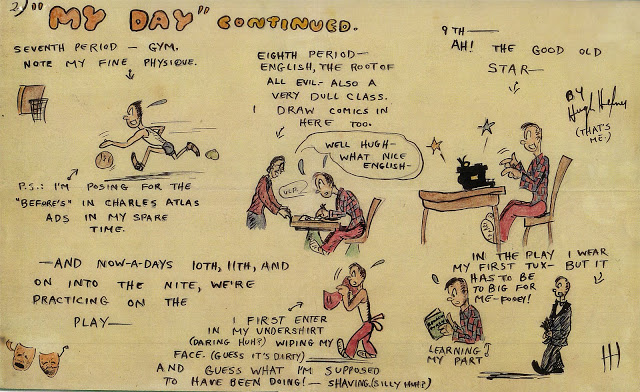 2) "MY DAY" CONTINUED.
SEVENTH PERIOD — GYM.
NOTE MY FINE PHYSIQUE.
P.S.: I'M POSING FOR THE
"BEFORE'S" IN CHARLES ATLAS
ADS IN MY SPARE
TIME.
EIGHTH PERIOD—
ENGLISH, THE ROOT OF
ALL EVIL- ALSO A
VERY DULL CLASS.
I DRAW COMICS IN
HERE TOO.
WELL HUGH—
WHAT NICE
ENGLISH—
ULP.
9TH—
AH! THE GOOD OLD
STAR—
BY
Hugh Hefner
(THAT'S
ME.)
—AND NOW-A-DAYS 10TH, 11TH, AND
ON INTO THE NITE, WE'RE
PRACTICING ON THE
PLAY—
I FIRST ENTER
IN MY UNDERSHIRT
(DARING HUH?) WIPING MY
FACE. (GUESS IT'S DIRTY)
AND GUESS WHAT I'M SUPPOSED
TO HAVE BEEN DOING!— SHAVING. (SILLY HUH?)
IN THE PLAY I WEAR
MY FIRST TUX— BUT IT
HAS TO BE
TO BIG FOR
ME-POOEY!
LEARNING
MY PART
HH